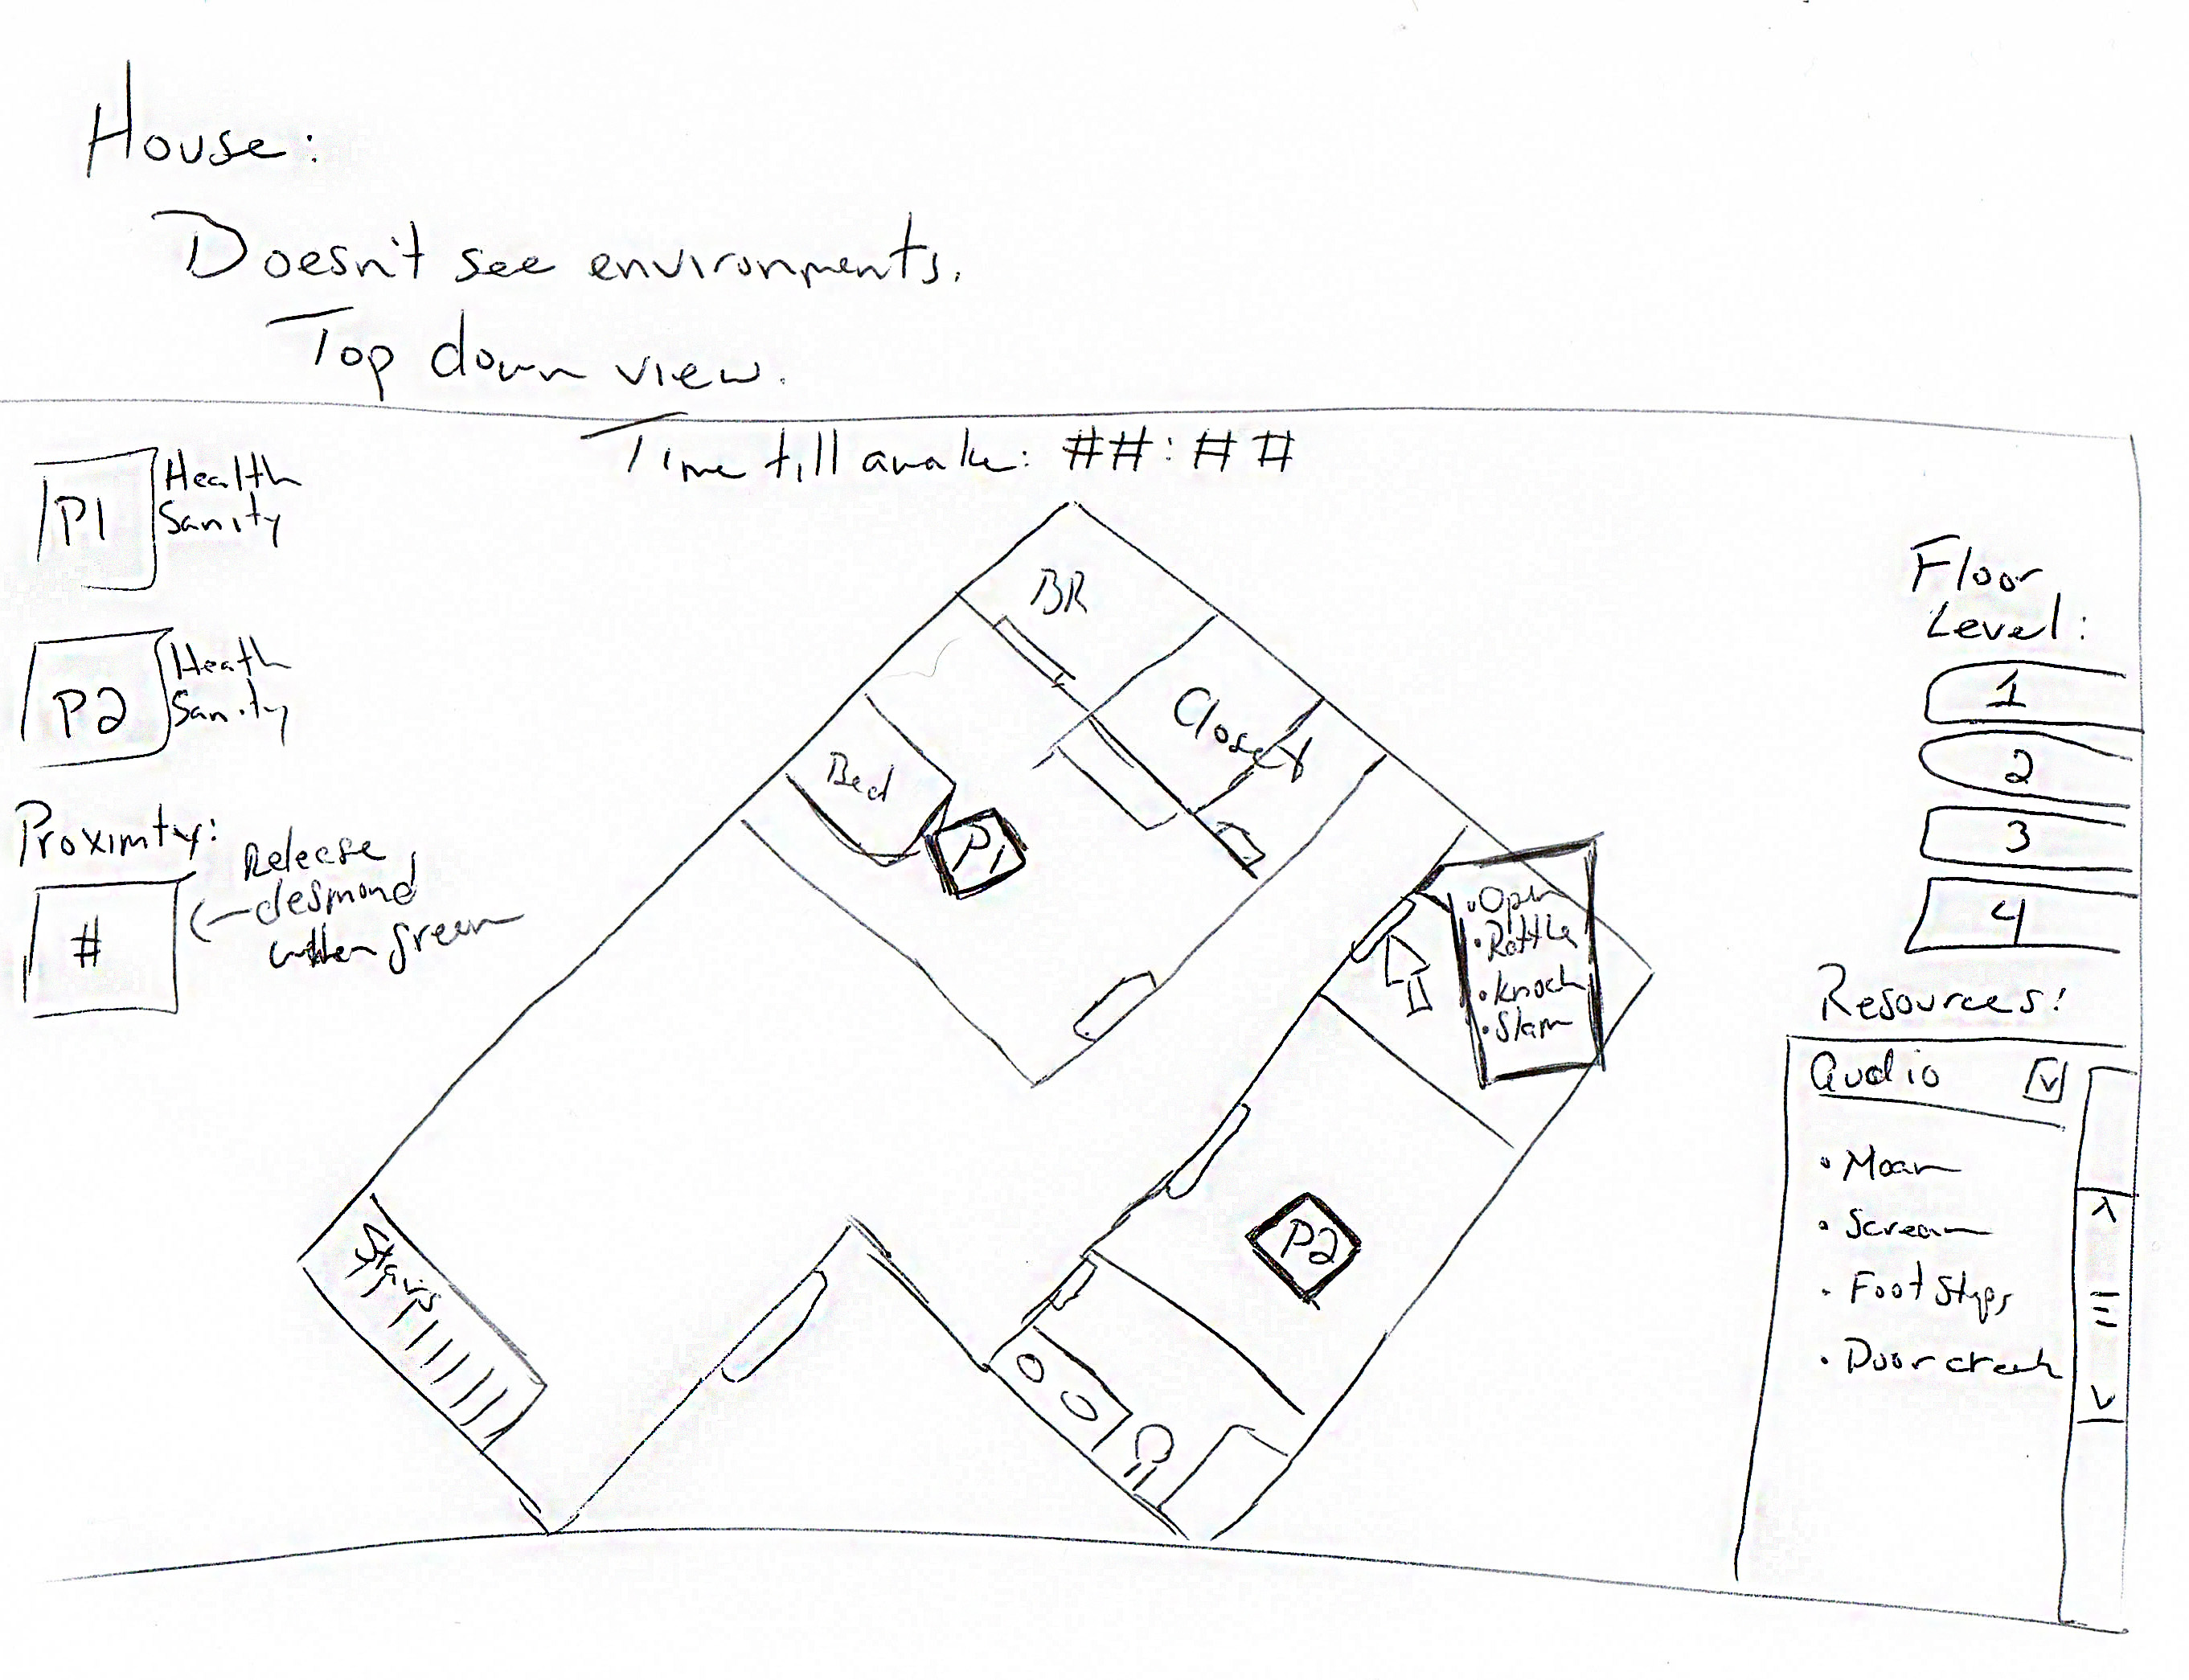 House:
Doesn't see environments.
Top down view.
Time till awake: ##:##
P1
Health
Sanity
P2
Heath
Sanity
Proximty:
#
Release
desmond
when green
BR
Closet
Bed
P1
• Open
• Rattle
• Knock
• Slam
P2
Stairs
Floor
Level:
1
2
3
4
Resources:
Audio
• Moan
• Scream
• Foot Steps
• Door creak